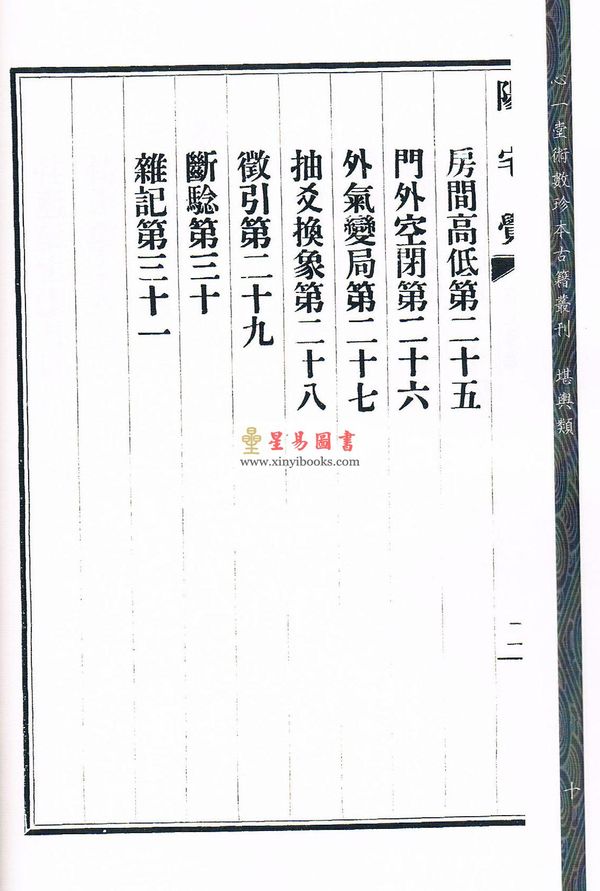 心一堂術數珍本古籍叢刊 堪輿類
十
陽宅覺
二
房間高低第二十五
門外空閉第二十六
外氣變局第二十七
抽爻換象第二十八
徵引第二十九
斷騐第三十
雜記第三十一
星易圖書
www.xinyibooks.com